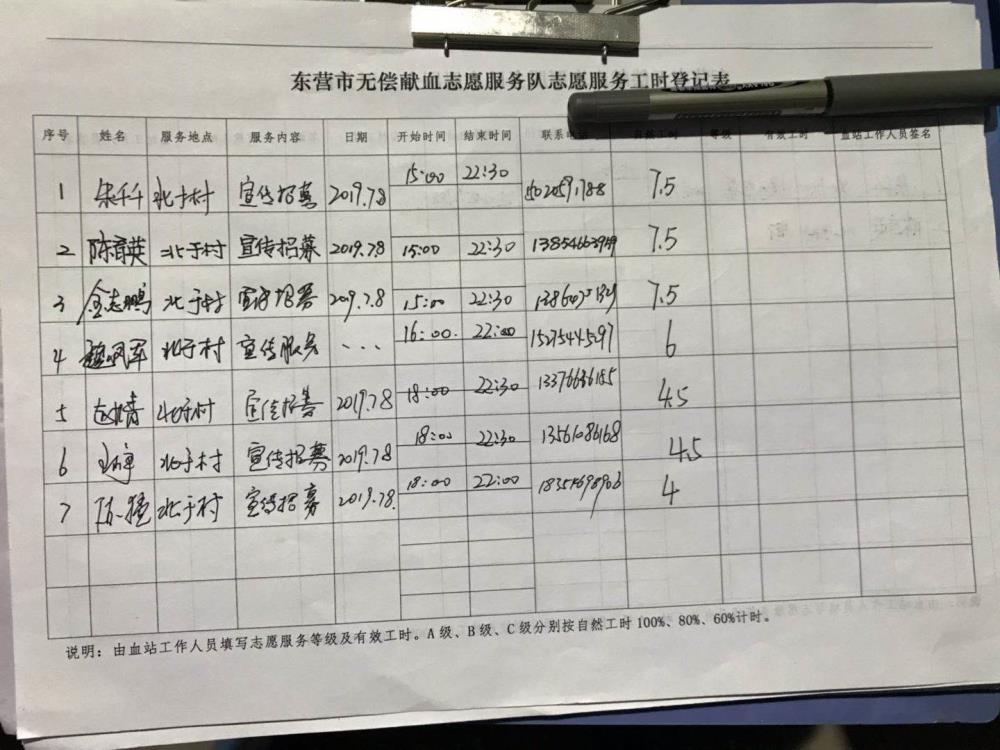 东营市无偿献血志愿服务队志愿服务工时登记表
序号 姓名 服务地点 服务内容 日期 开始时间 结束时间 联系电话 自然工时 等级 有效工时 血站工作人员签名
1 朱千千 北于村 宣传招募 2019.7.8 15:00 22:30 7.5
2 陈育英 北于村 宣传招募 2019.7.8 15:00 22:30 7.5
3 金志鹏 北于村 宣传招募 2019.7.8 15:00 22:30 7.5
4 北于村 宣传服务 ... 16:00. 22:00 15275445097 6
5 北于村 宣传招募 2019.7.8 18:00 22:30 13376636185 4.5
6 北于村 宣传招募 2019.7.8 18:00 22:30 13561086168 4.5
7 北于村 宣传招募 2019.7.8. 18:00 22:00 4
说明：由血站工作人员填写志愿服务等级及有效工时。A级、B级、C级分别按自然工时100%、80%、60%计时。